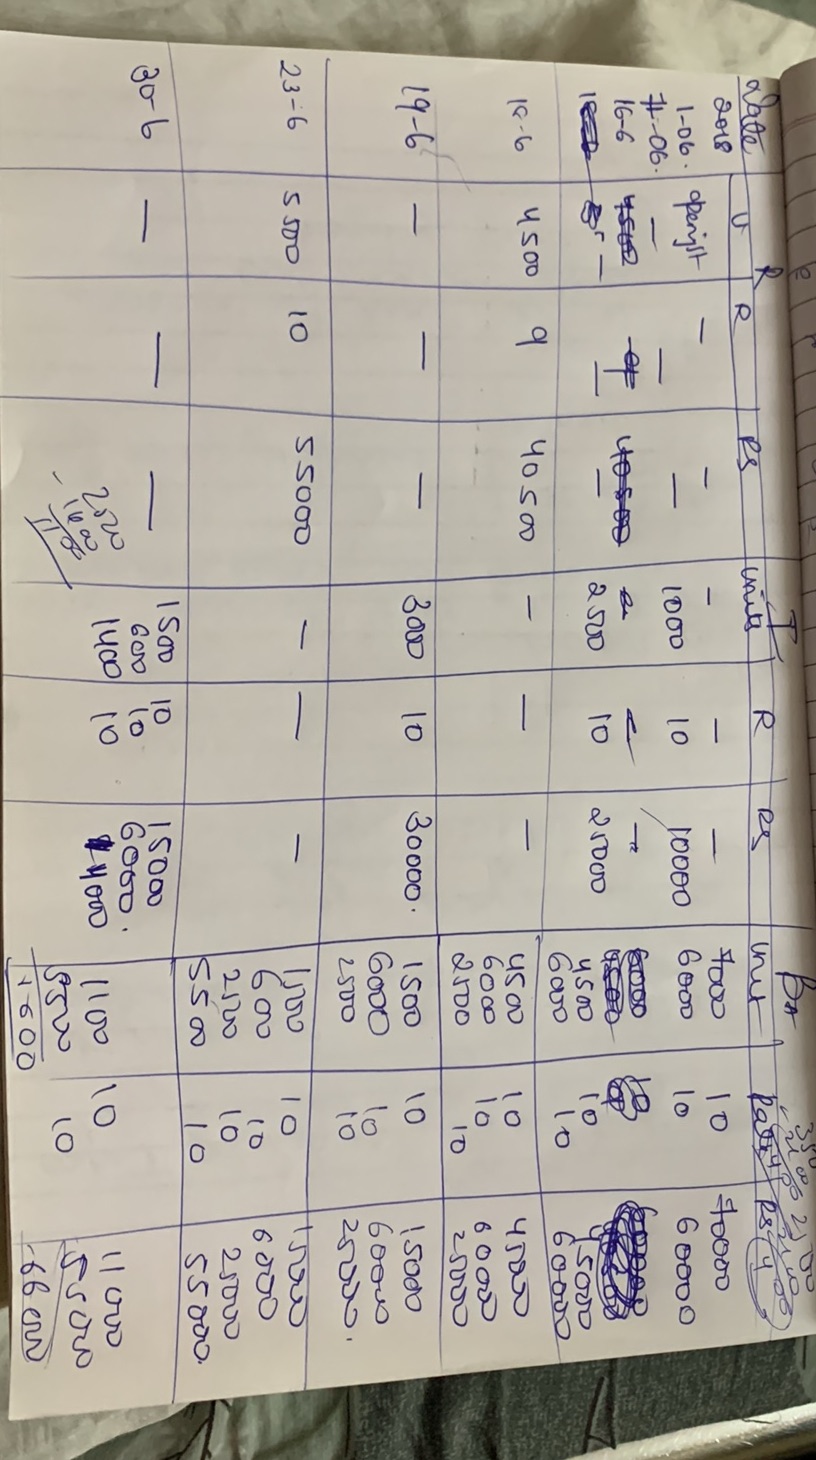 R I Bn
Date U R RS Units R RS Unit Rate RS
2018
1-06. openingst — — — — — 7000 10 70000
7-06. — — — 1000 10 10000 6000 10 60000
16-6 4500 9 40500
— — — 2500 10 25000 4500 10 45000
6000 10 60000
18-6 4500 9 40500 — — — 4500 10 45000
6000 10 60000
2500 10 25000
19-6 — — — 3000 10 30000. 1500 10 15000
6000 10 60000
2500 10 25000.
23-6 5500 10 55000 — — — 1500 10 15000
600 10 6000
2500 10 25000
5500 10 55000.
30-6 — — — 1500 10 15000
600 10 6000.
1400 10 14000
1100 10 11000
5500 10 55000
6600 66000
2500
1400
1100